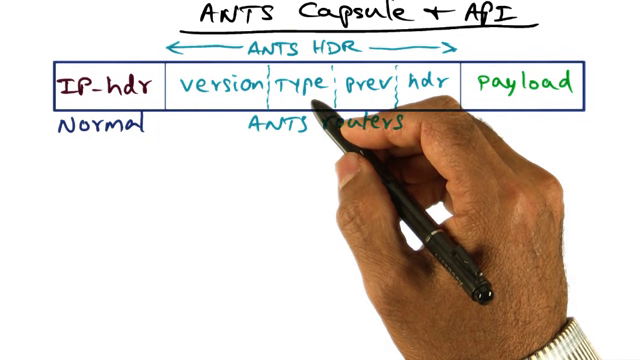 ANTS Capsule + API
ANTS HDR
IP-hdr version Type prev hdr Payload
Normal ANTS routers